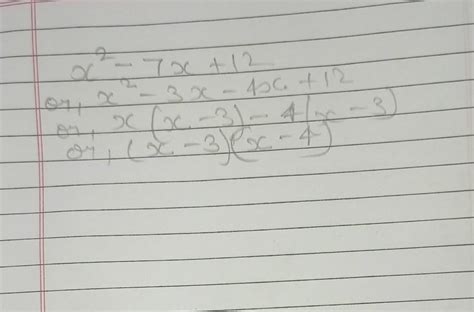 x² - 7x + 12
or, x² - 3x - 4x + 12
or, x (x - 3) - 4 (x - 3)
or, (x - 3) (x - 4)